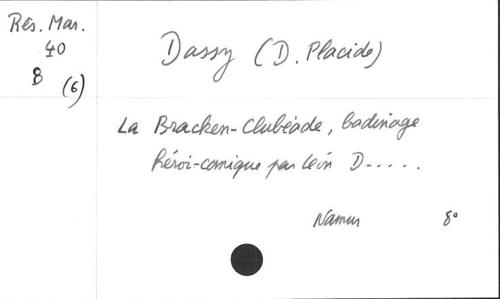 Res. Mar.
40
8 (6)
Dassy (D. Placide)
La Bracken-Clubéade, badinage
héroï-comique par Léon D.....
Namur 8°